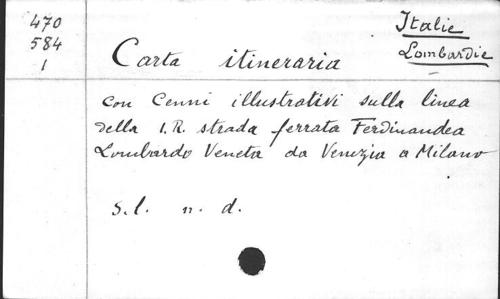 470
584
1
Italie
Lombardie
Carta itineraria
con Cenni illustrativi sulla linea
della I.R. strada ferrata Ferdinandea
Lombardo Veneta da Venezia a Milano
S.l. n. d.